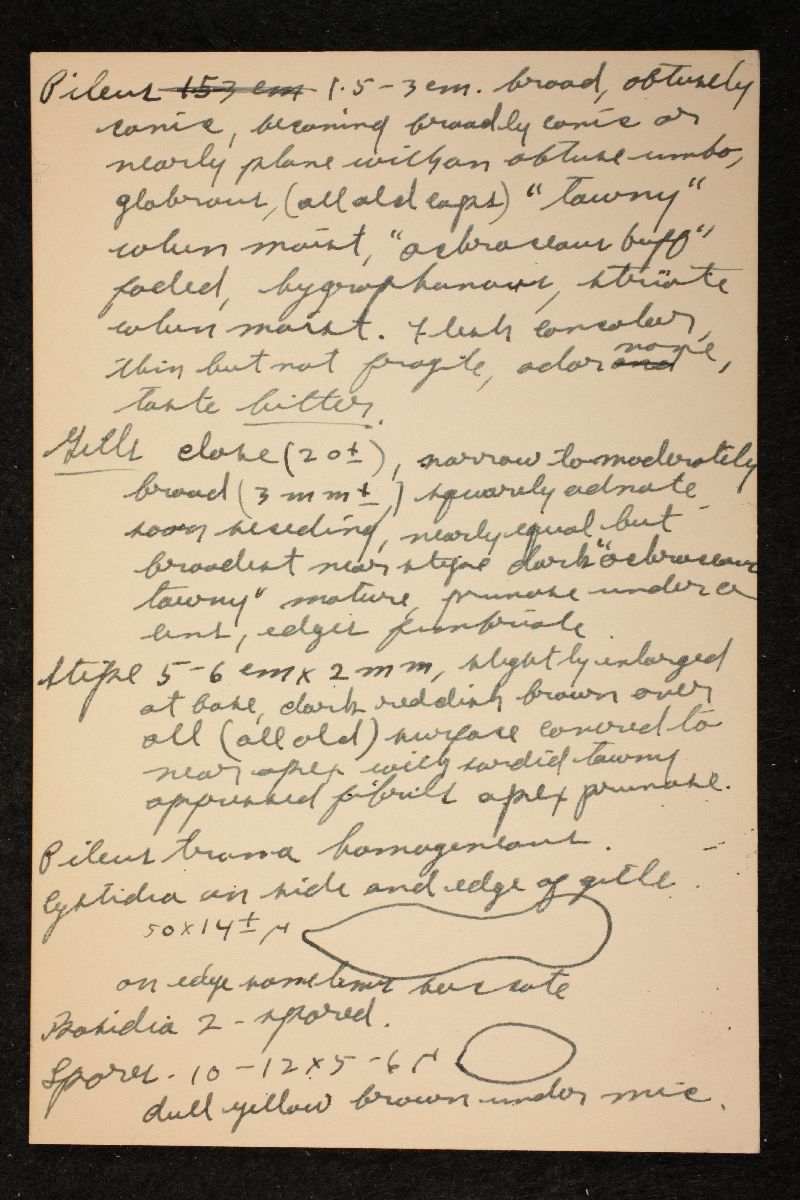 Pileus 153 cm 1.5 - 3 cm. broad, obtusely
conic, becoming broadly conic or
nearly plane with an obtuse umbo,
glabrous, (all old caps) "tawny"
when moist, "ochraceous buff"
faded, hygrophanous, striate
when moist. Flesh concolor,
thin but not fragile, odor and none,
taste bitter.
Gills close (20±), narrow to moderately
broad (3 mm±,) squarely adnate
soon seceding, nearly equal but
broadest near stipe dark "ochraceous
tawny" mature, pruinose under a
lens, edges fimbriate
Stipe 5-6 cm x 2 mm, slightly enlarged
at base, dark reddish brown over
all (all old) surface covered to
near apex with sordid tawny
appressed fibrils apex pruinose.
Pileus trama homogeneous.
Cystidia on side and edge of gills.
50x14± μ
on edge sometimes saccate
Basidia 2-spored.
Spores. 10-12x5-6 μ
dull yellow brown under mic.